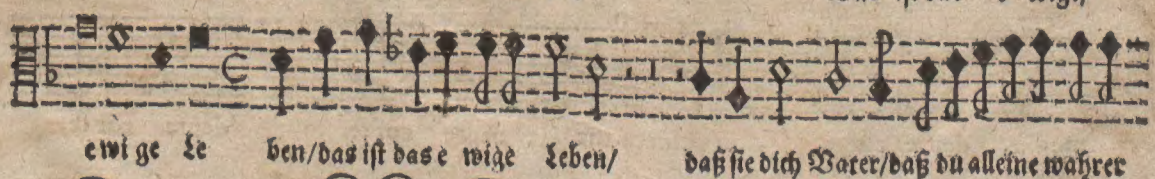 ewi ge Le ben/das ist das e wige Leben/ daß sie dich Vater/daß du alleine wahrer